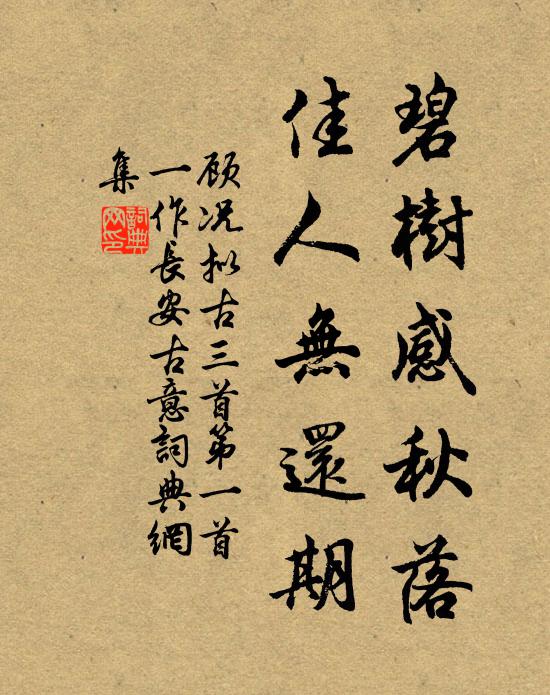 碧樹感秋落
佳人無還期
顾况拟古三首第一首
一作長安古意詞典網
集
詞典網印